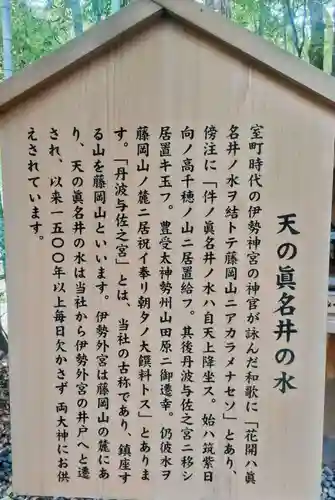 天の眞名井の水
室町時代の伊勢神宮の神官が詠んだ和歌に「花開ハ眞
名井ノ水ヲ結トテ藤岡山ニアカラメナセソ」とあり、
傍注に「件ノ眞名井ノ水ハ自天上降坐ス。始ハ筑紫日
向ノ高千穂ノ山ニ居置給フ。其後丹波与佐之宮ニ移シ
居置キ玉フ。豊受太神勢州山田原ニ御遷幸。仍彼水ヲ
藤岡山ノ麓ニ居祝イ奉リ朝タノ大饌料トス」とありま
す。「丹波与佐之宮」とは、当社の古称であり、鎮座す
る山を藤岡山といいます。伊勢外宮は藤岡山の麓にあ
り、天の眞名井の水は当社から伊勢外宮の井戸へと遷
され、以来一五〇〇年以上毎日欠かさず両大神にお供
えされています。